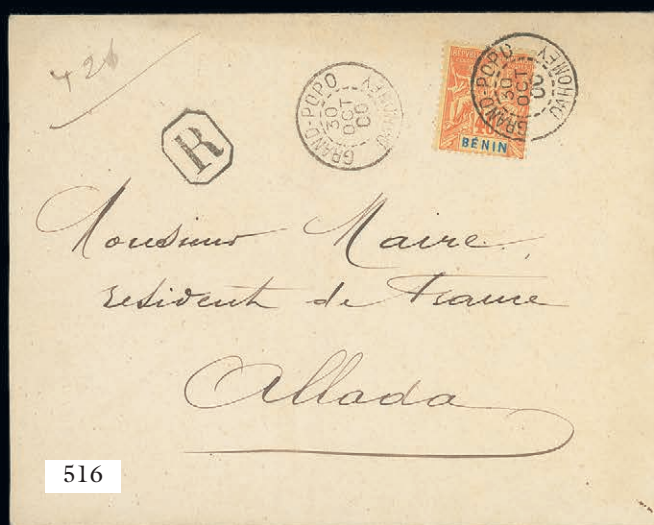 426
GRAND-POPO
30
OCT
00
DAHOMEY
GRAND-POPO
30
OCT
00
DAHOMEY
40
BÉNIN
R
Monsieur Maire
résident de France
Allada
516